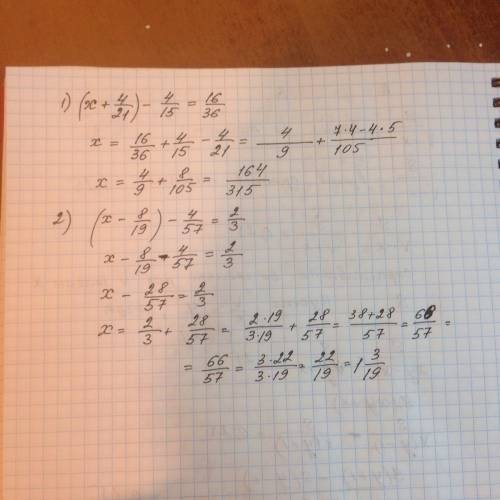 1) (x + 4/21) - 4/15 = 16/36
x = 16/36 + 4/15 - 4/21 = 4/9 + (7·4-4·5)/105
x = 4/9 + 8/105 = 164/315
2) (x - 8/19) - 4/57 = 2/3
x - 8/19 - 4/57 = 2/3
x - 28/57 = 2/3
x = 2/3 + 28/57 = 2·19/3·19 + 28/57 = 38+28/57 = 66/57 =
= 66/57 = 3·22/3·19 = 22/19 = 1 3/19